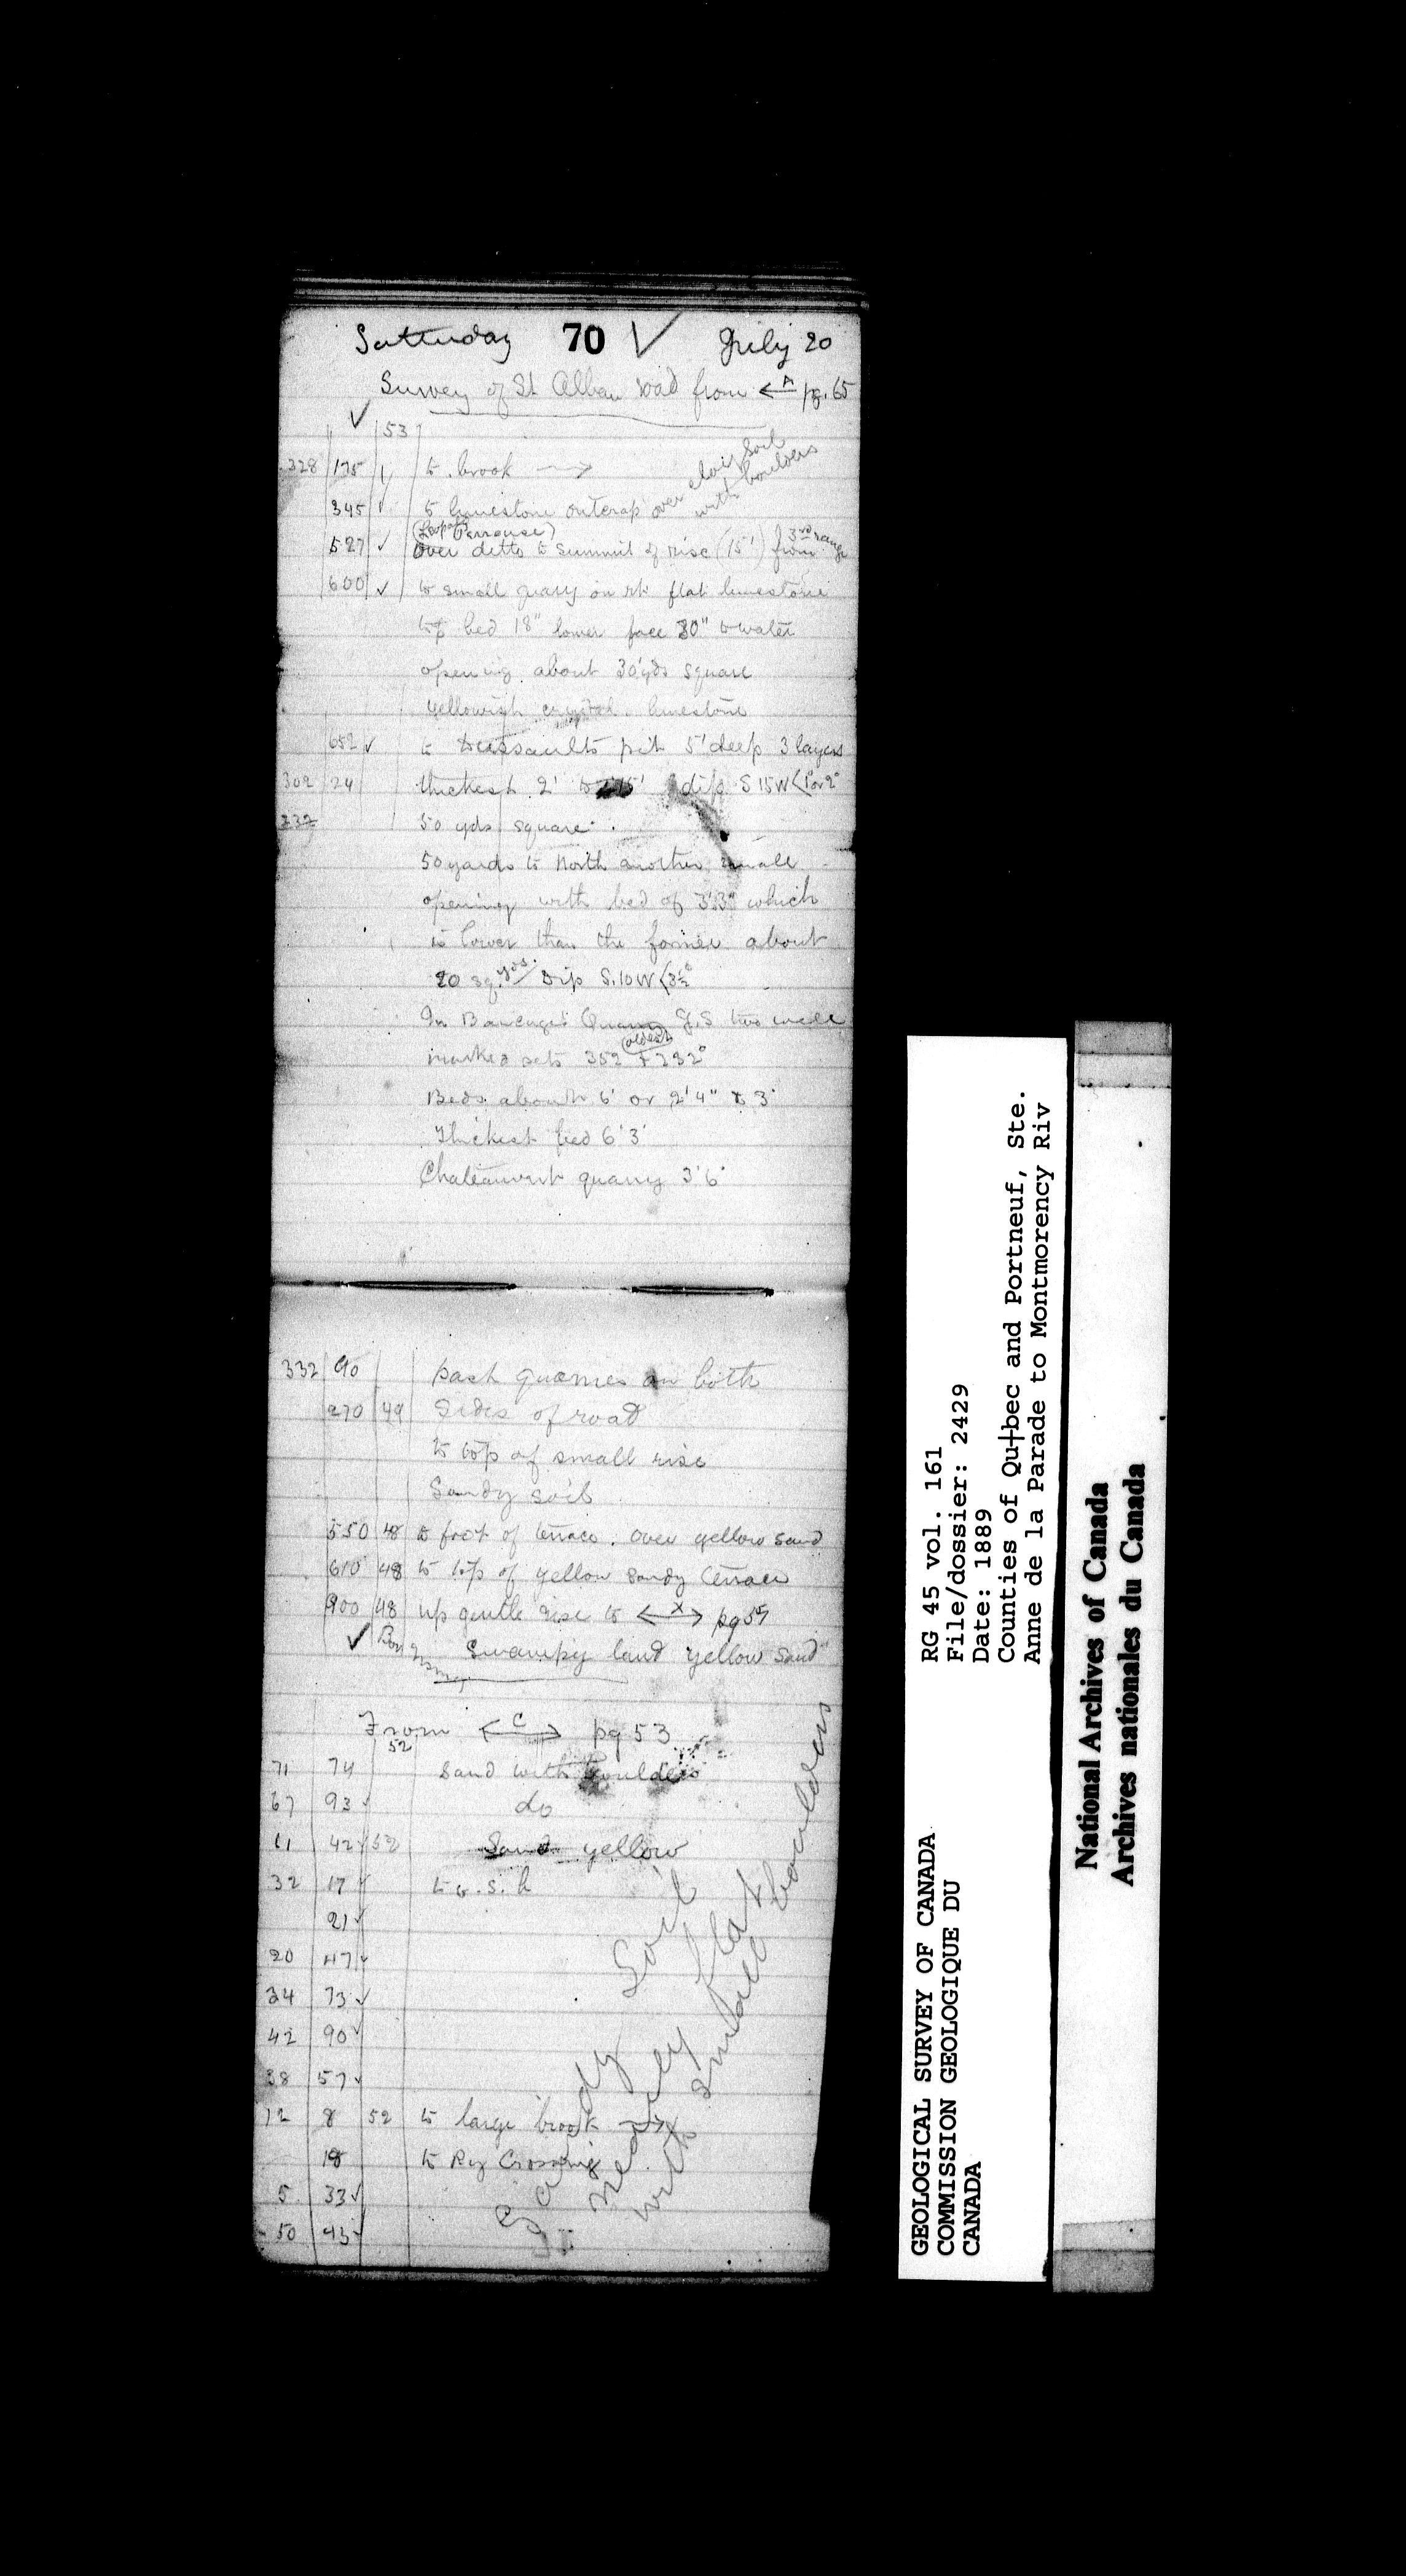 Satturday 70 ✓ July 20
Survey of St Alban road from ← A pg. 65
✓ 53
328 175 to brook → clay soil
345 ✓ to limestone outcrop over with boulders
527 ✓ over ditto to summit of rise (15') from 3rd range
600 ✓ to small quary on rt flat limestone
top bed 18" lower face 30" to water
opening about 30 yds square
yellowish limestone
652 ✓ to Dussaults pit 5' deep 3 layers
302 24 thickest 2' to dip S 15 W < 1° or 2°
332 50 yds square
50 yards to North another small
opening with bed of 3'3" which
is lower than the former about
20 sq. yds. Dip S. 10 W < 3½°
In Quarry J.S two well
(oldest)
marked sets 352 + 282°
Beds about 6' or 2'4" to 3'
Thickest bed 6'3'
Chateauvert quarry 3'6"
332 90 past quarries on both
270 49 sides of road
to top of small rise
Sandy soil
550 48 to foot of terrace. over yellow sand
610 48 to top of yellow sandy terrace
900 48 up gentle rise to ← X → pg 57
✓ swampy land yellow sand
From ← C → pg 53
52
71 74 Sand with boulders
67 93 ✓ do
11 42 ✓ 52 Sand yellow
32 17 ✓ to w.s.h
21 ✓
20 47 ✓
34 73 ✓
42 90 ✓
38 57 ✓
12 8 52 to large brook →
18 to Ry Crossing
5 33 ✓
50 43
Sandy Soil
nearly flat
with small boulders
RG 45 vol. 161
File/dossier: 2429
Date: 1889
Counties of Qu†bec and Portneuf, Ste.
Anne de la Parade to Montmorency Riv
GEOLOGICAL SURVEY OF CANADA
COMMISSION GEOLOGIQUE DU
CANADA
National Archives of Canada
Archives nationales du Canada